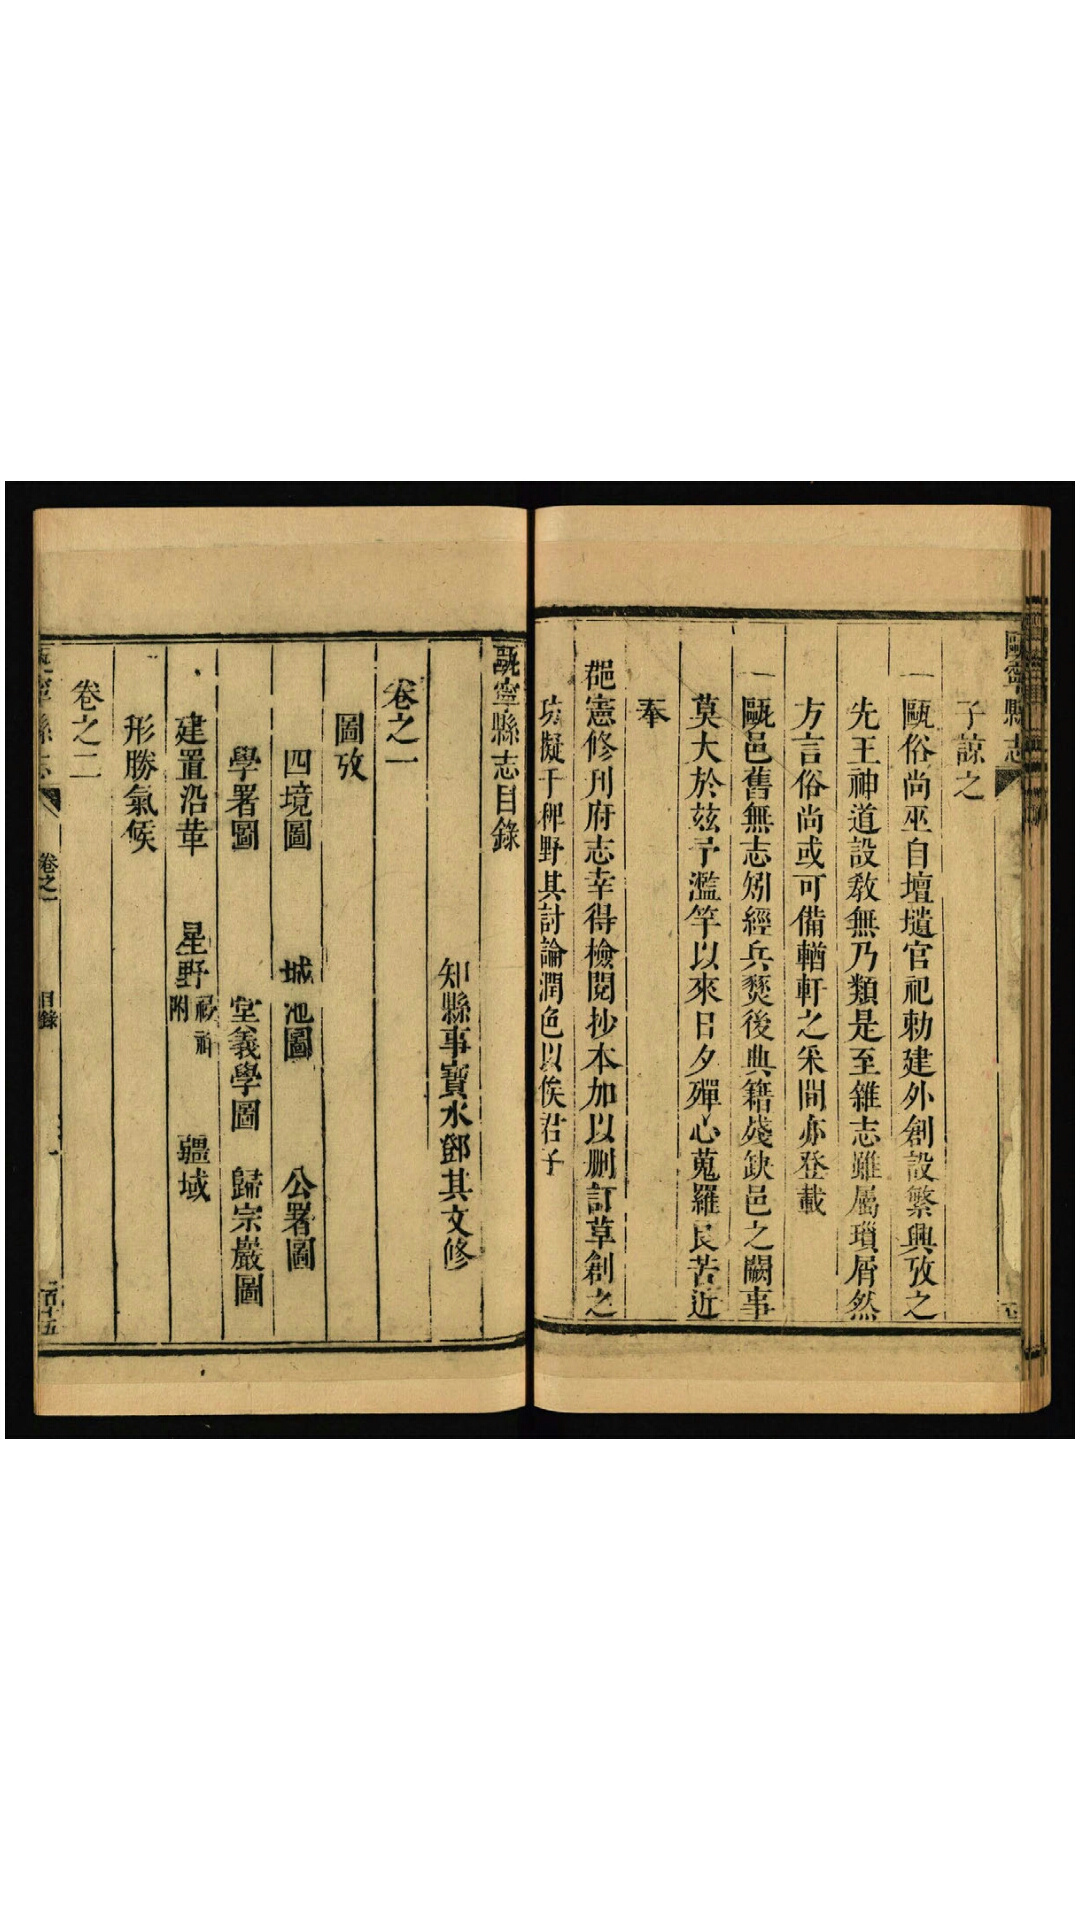 甌寧縣志
子諒之
一甌俗尚巫自壇壝官祀勅建外創設繁興攷之
先王神道設敎無乃類是至雜志雖屬瑣屑然
方言俗尚或可備輶軒之采間亦登載
一甌邑舊無志矧經兵燹後典籍殘缺邑之闕事
莫大於兹予濫竽以來日夕殫心蒐羅良苦近
奉
郒憲修刋府志幸得檢閱抄本加以删訂草創之
功擬于稗野其討論潤色以俟君子
甌寧縣志目錄
知縣事寶水鄧其文修
卷之一
圖攷
四境圖 城池圖 公署圖
學署圖 堂義學圖 歸宗巖圖
建置沿革 星野 祲祥附 疆域
形勝氣候
卷之二
甌寧縣志 卷之一 目錄